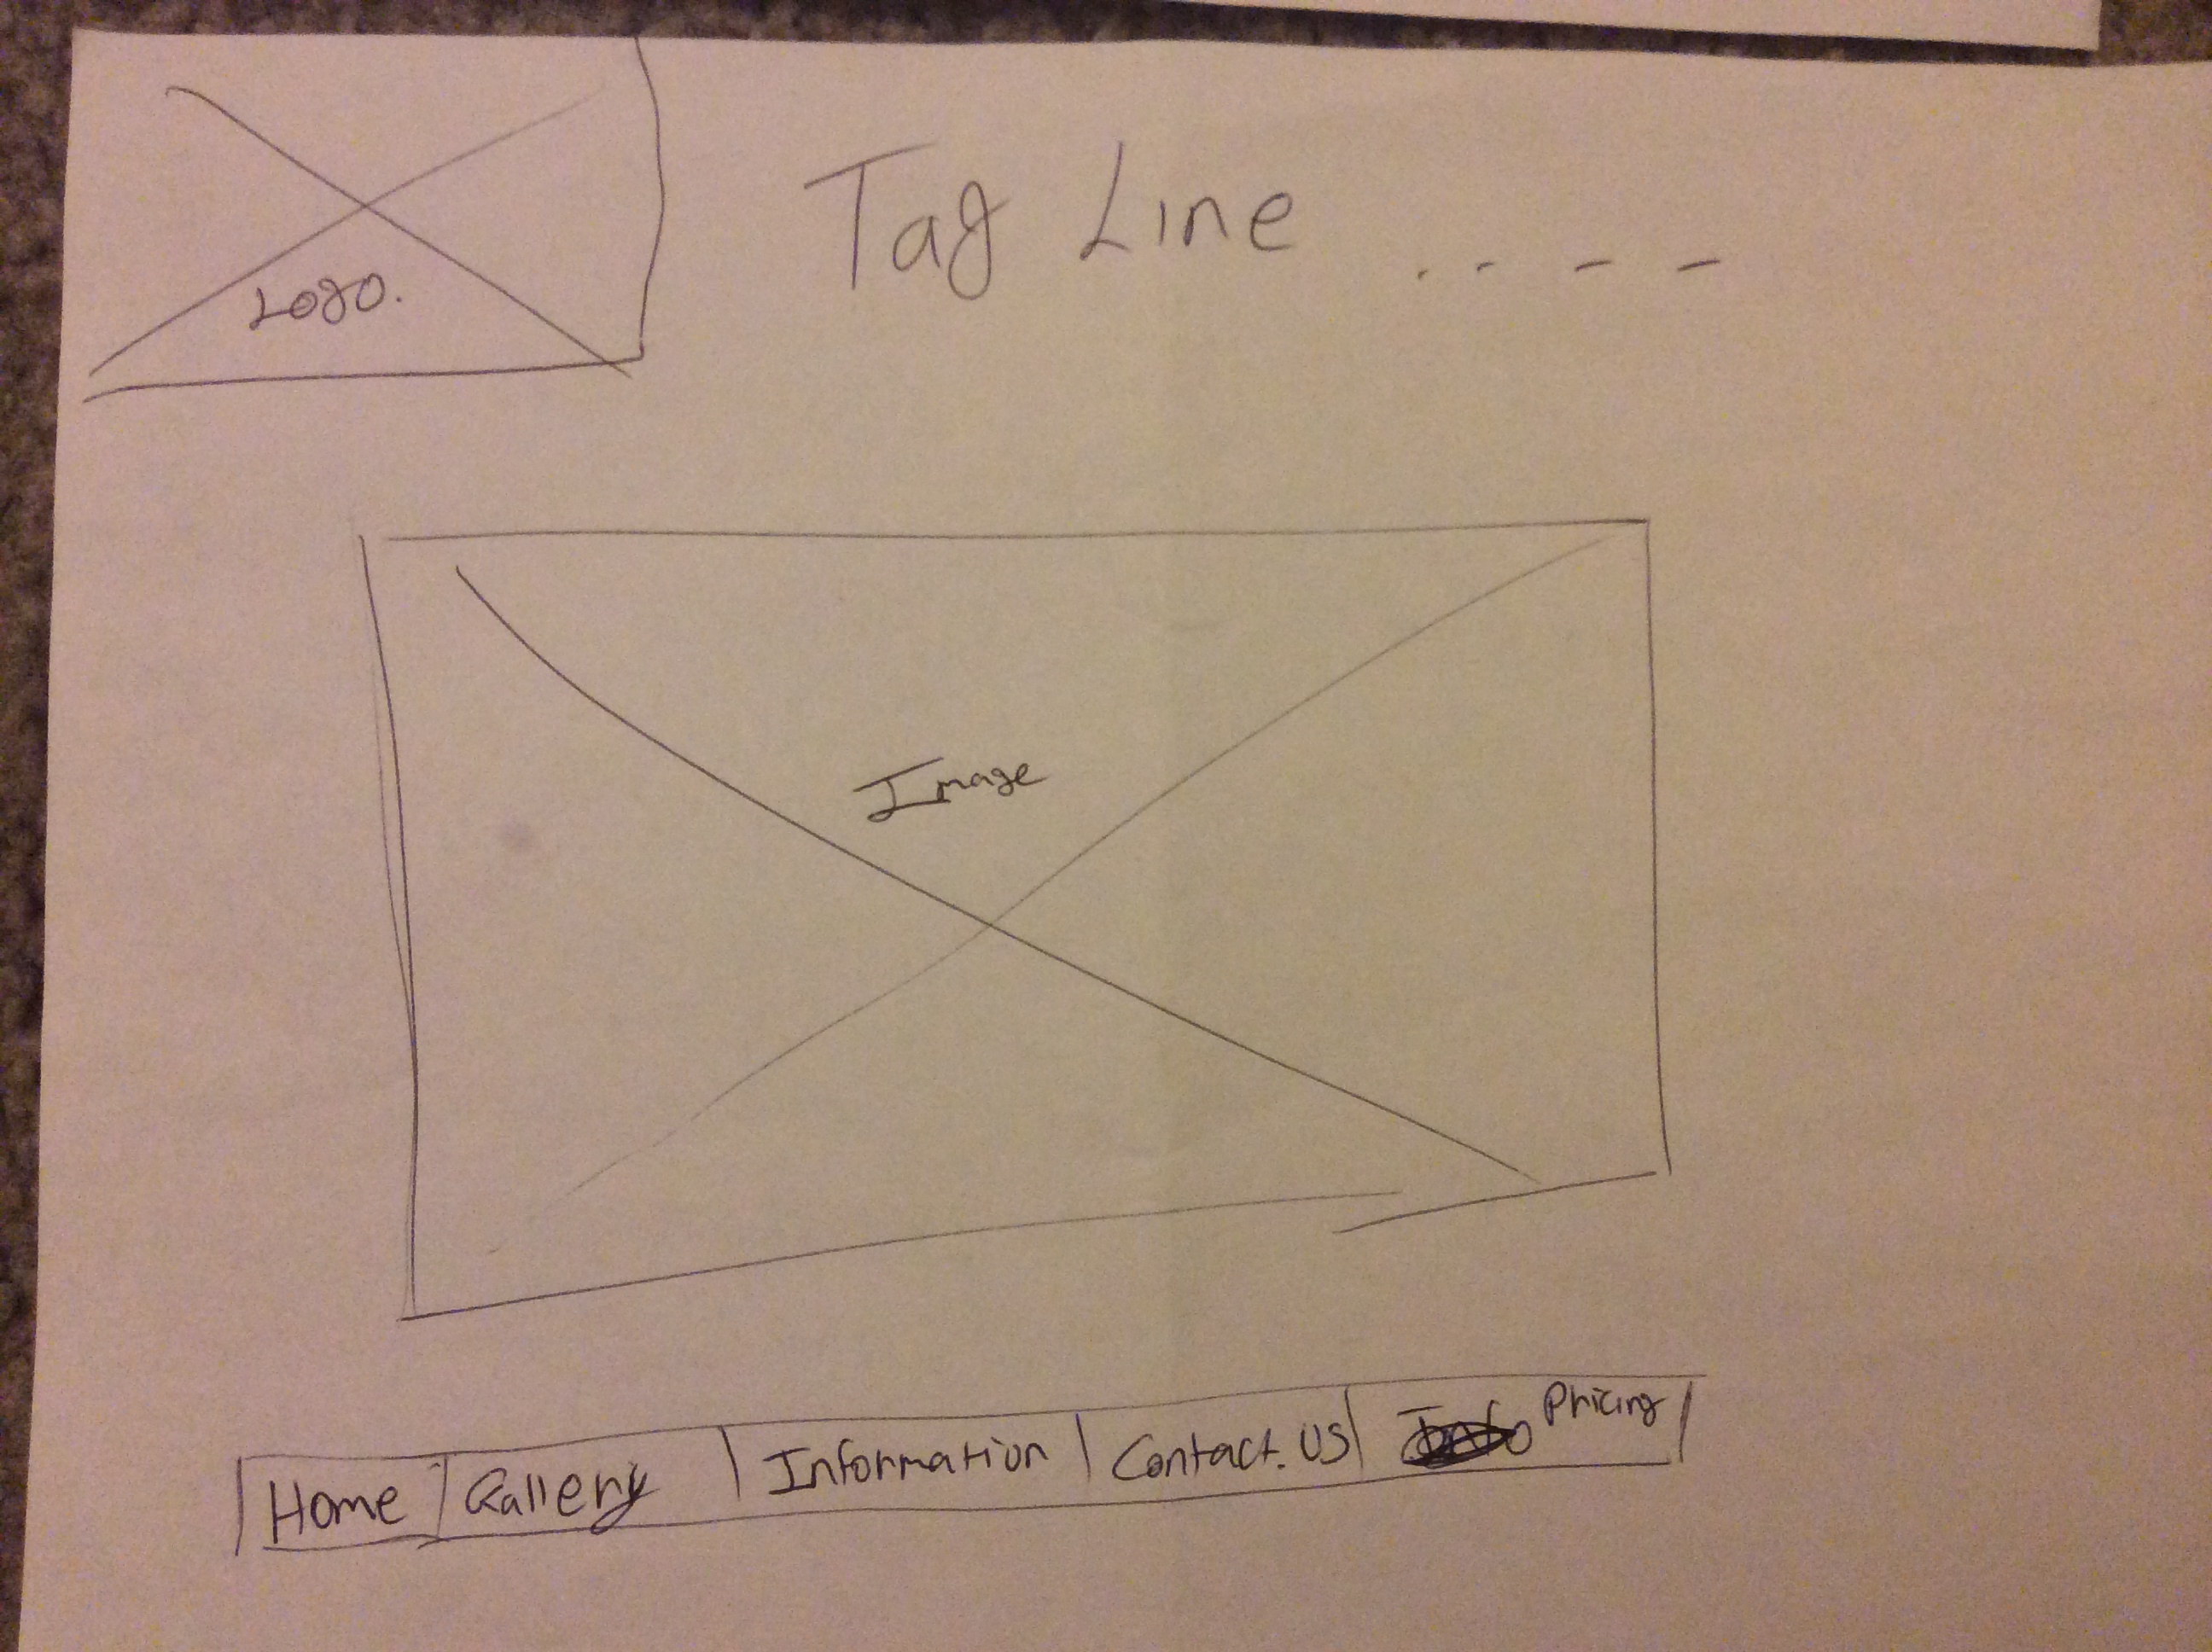 Logo.
Tag Line . . - -
Image
Home | Gallery | Information | Contact. US | Pricing |